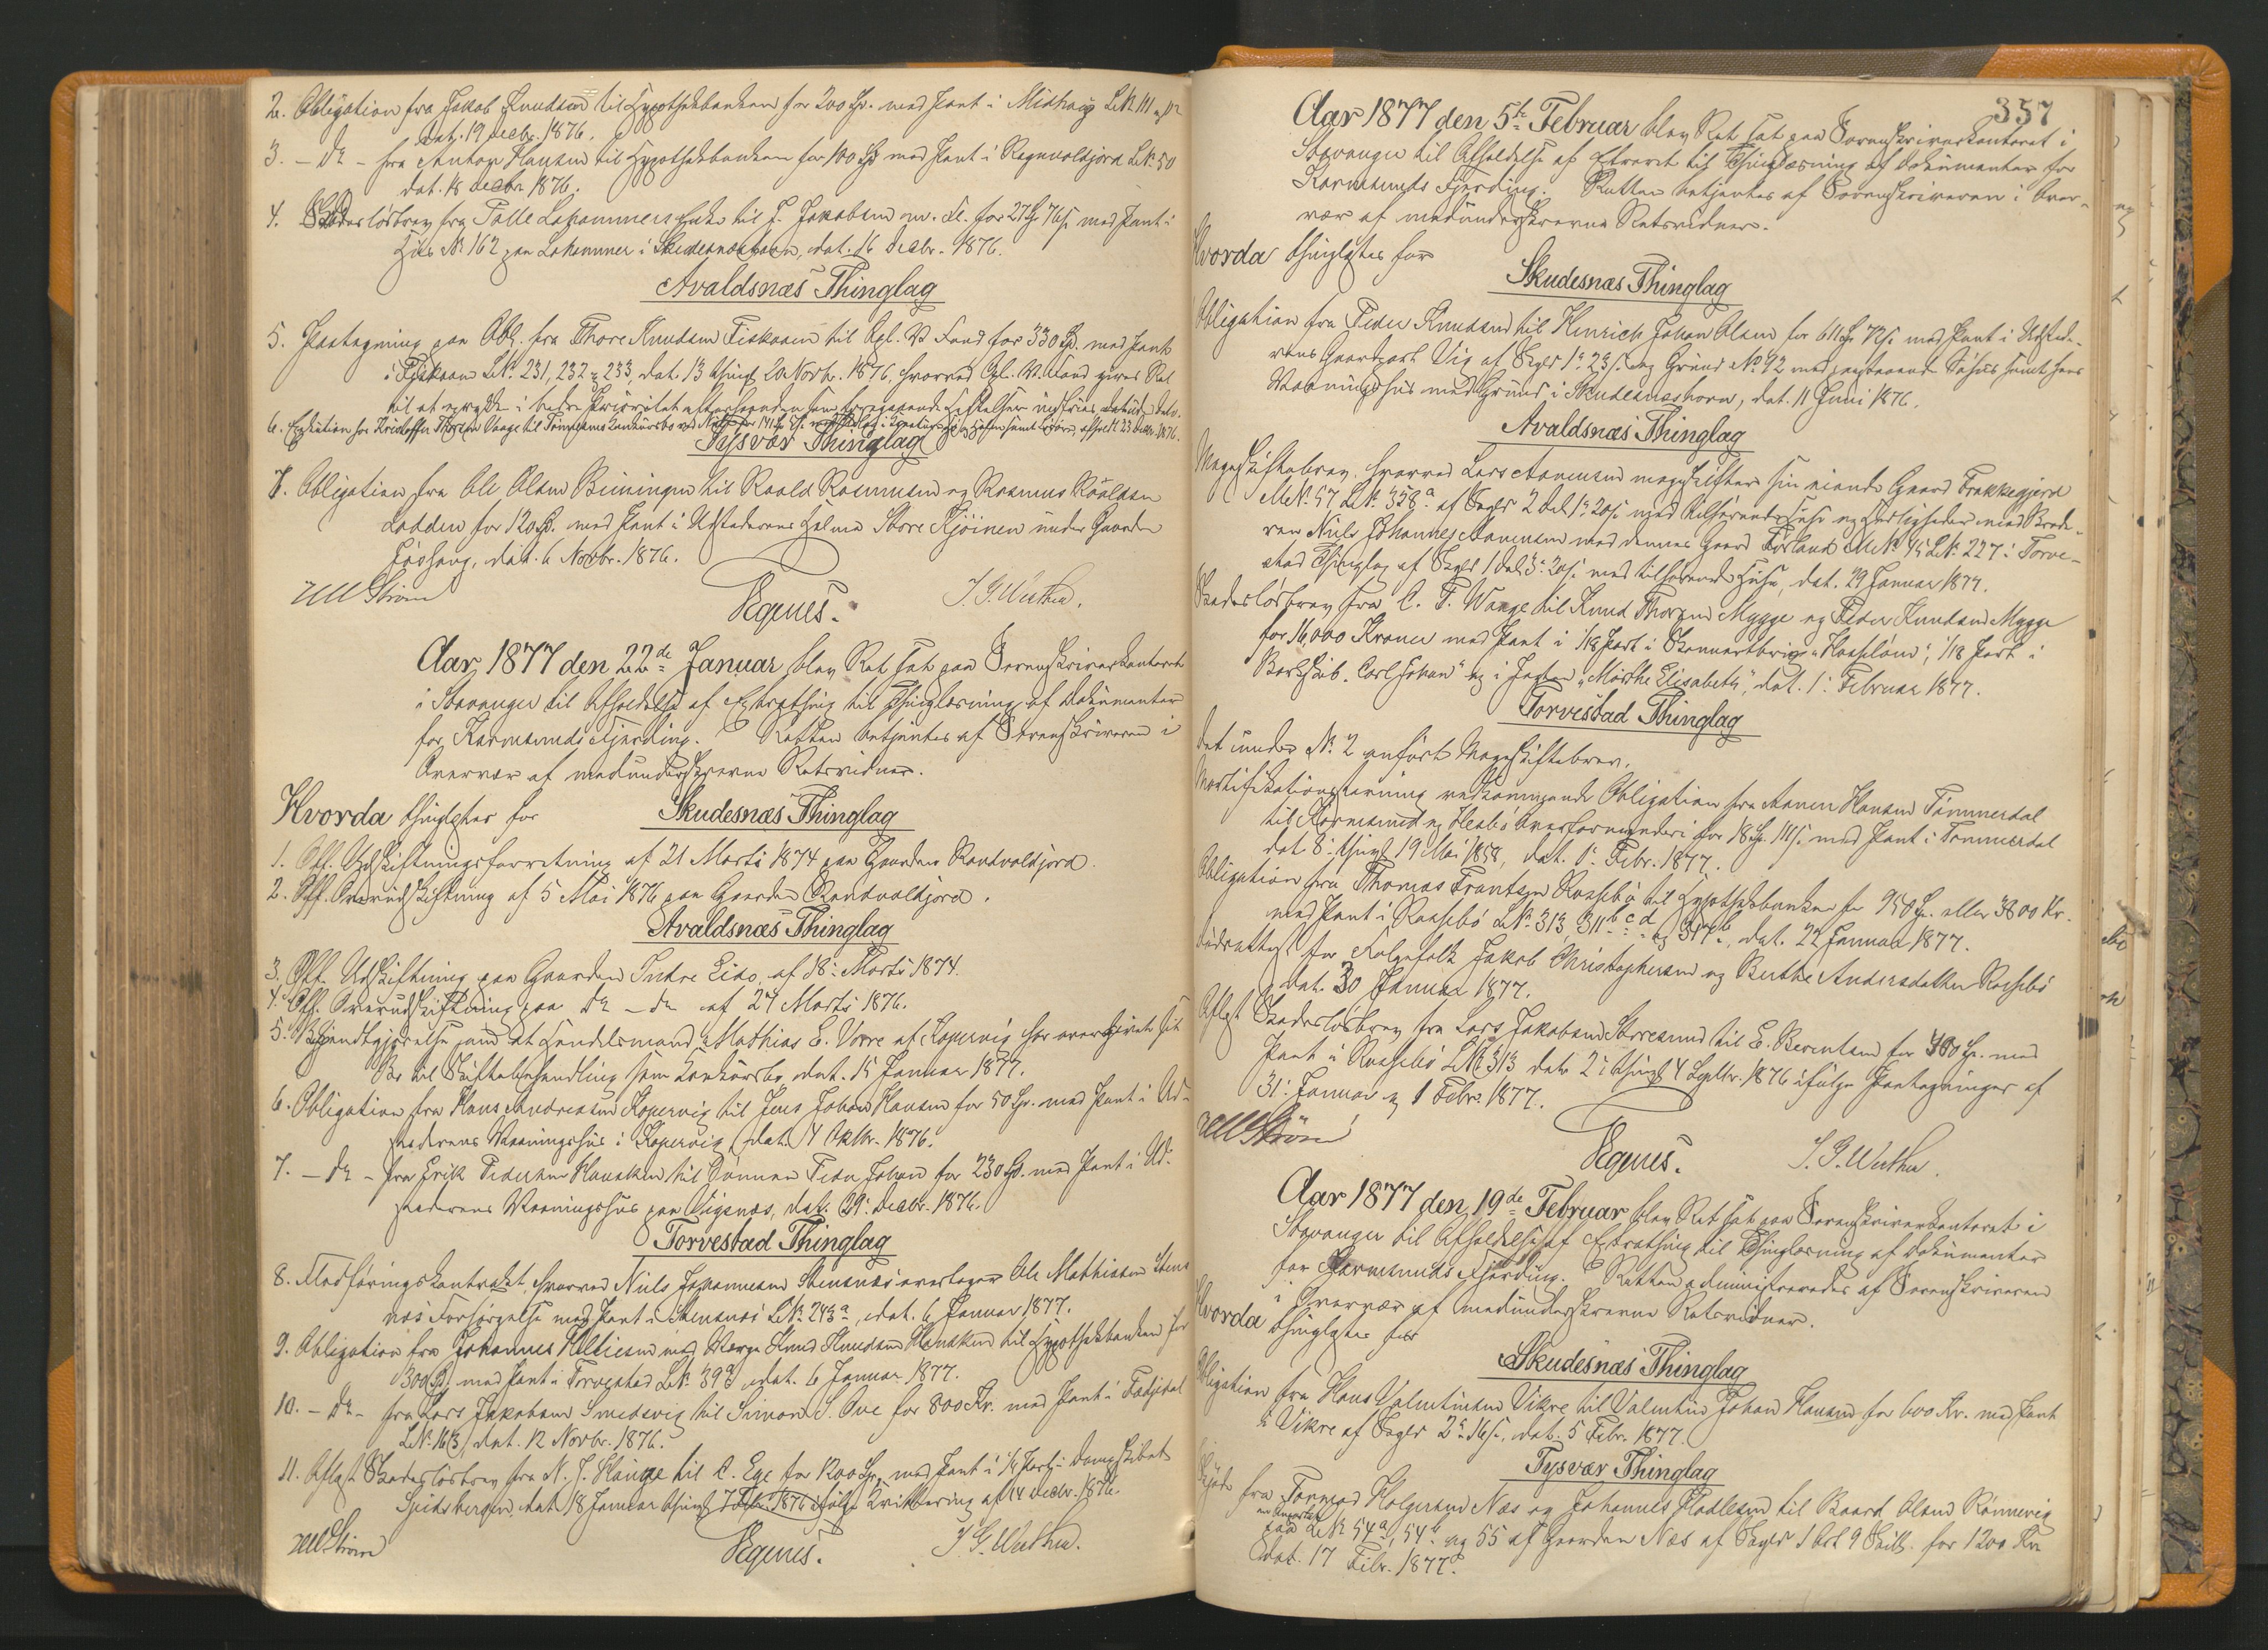 2. Obligation fra Jakob Knudsen til Hypothekbanken for 200 Sp. med Pant i Midhaug LNo 111
dat. 19 Decbr. 1876.
3. – Do – fra Anton Hansen til Hypothekbanken for 100 Sp med Pant i Ragnvoldjord LNo 50
dat. 18 Decbr 1876.
4. Skadesløsbrev fra Palle Lahammers Enke til J. Jakobsen for 27 Sp 76 s med Pant i
Hus No 162 paa Lahammer i Skudesneshavn, dat. 16 Decbr. 1876.
Avaldsnæs Thinglag
5. Paategning paa Obl. fra Thore Knudsen Fiskaaen til Opl. V. Fond for 330 Sp. med Pant
i Fiskaaen LNo 231, 232 og 233, dat. 13 thingl. 20 Novbr. 1876, hvorved Opl. V. Fond gives Ret
til at oprykke i bedre Prioritet efterhaanden som foregaaende Heftelser indfries
6. Exekution for Kristoffer Thorsen Vaage til Tønnesens Konkursbo
Tysvær Thinglag
7. Obligation fra Ole Olsen Beiningen til Roald Rasmussen og Rasmus Roaldsen
Lodden for 120 Sp. med Pant i Udstederens Holme Store Kjöinen under Gaarden
dat. 6 Novbr. 1876.
Ull Strøm
Egenes.
J. G. Wuthe.
Aar 1877 den 22de Januar blev Ret sat paa Sorenskriverkontoret
i Stavanger til Afholdelse af Extrathing til Thinglæsning af Dokumenter
for Karmsunds Fjerding. Retten betjentes af Sorenskriveren i
Overvær af medunderskrevne Retsvidner.
Hvorda thinglystes for
Skudesnæs Thinglag
1. Off. Udskiftningsforretning af 21 Marts 1874 paa Gaarden Randvoldjord.
2. Off. Overudskiftning af 5 Mai 1876 paa Gaarden Randvoldjord.
Avaldsnæs Thinglag
3. Off. Udskiftning paa Gaarden Indre Eide, af 18: Marts 1874.
4. Off. Overudskiftning paa Do – Do af 27 Marts 1876.
5. Bekjendtgjørelse om at Handelsmand Mathias E. Vorre af Kopervig har overgivet sit
Bo til Skiftebehandling som Konkursbo dat. 15 Januar 1877.
6. Obligation fra Hans Andreasen Kopervig til Jens Johan Hansen for 50 Sp. med Pant i Ud-
stederens Vaaningshus i Kopervig, dat. 4 Oktbr. 1876.
7. – Do – fra Erik Pedersen Hausken til Sønnen Peder Johan for 230 Sp. med Pant i Ud-
stederens Vaaningshus paa Vigsnæs, dat. 29: Decbr. 1876.
Torvestad Thinglag
8. Fledføringskontrakt, hvorved Niels Johannesen Stensnæs overtager Ole Mathiasen Stens
næs Forsørgelse med Pant i Stensnæs LNo 243a, dat. 6 Januar 1877.
9. Obligation fra Johannes Elliesen med Værge Knud Knudsen Hausken til Hypothekbanken for
300 Sp. med Pant i Torvestad LNo 39a dat. 6 Januar 1877.
10. – Do – fra Lars Jakobsen Smedsvig til Simon S. Ove for 800 Kr. med Pant i
LNo 163, dat. 12 Novbr. 1876.
11. Aflyst Skadesløsbrev fra N. J. Hauge til C. Ege for 1200 Sp. med Pant i 1/4 Part i Dampskibet
Spidsbergen, dat. 18 Januar thingl. 7 Febr. 1876 ifølge Kvittering af 14 Decbr. 1876.
Ull Strøm
Egenes.
J. G. Wuthe.
357
Aar 1877 den 5te Februar blev Ret sat paa Sorenskriverkontoret i
Stavanger til Afholdelse af Extraret til Thinglæsning af Dokumenter for
Karmsunds Fjerding. Retten betjentes af Sorenskriveren i Over-
vær af medunderskrevne Retsvidner.
Hvorda thinglystes for
Skudesnæs Thinglag
Obligation fra Peder Knudsen til Henrich Johan Olsen for 611 Sp 72 s. med Pant i Udstede-
rens Gaardpart Vig af Skyld 1: 23 s. og Grund No 92 med paastaaende Søhus samt hans
Vaaningshus med Grund i Skudesneshavn, dat. 11 Juni 1876.
Avaldsnæs Thinglag
Mageskiftebrev, hvorved Lars Aanensen mageskifter sin eiende Gaard Frakkegjerd
MNo 57 LNo 358a af Skyld 2 Dal 1: 20 s med tilhørende Huse og Herligheder med Brode-
ren Niels Johannes Aanensen mod dennes Gaard Førland MNo 45 LNo 227 i Torve-
stad Thinglag af Skyld 1 Dal 3: 20 s. med tilhørende Huse, dat. 29 Januar 1877.
Skadesløsbrev fra C. T. Waage til Knud Thorsen Mygge og Peder Knudsen Mygge
for 16,000 Kroner med Pant i 1/18 Part i Skonnertbrig „Haabløse", 1/18 Part i
Barkskib „Carl Johan" og i Jagten „Märthe Elisabeth", dat. 1: Februar 1877.
Torvestad Thinglag
Det under No 2 anførte Mageskiftebrev.
Mortifikationsstævning vedkommende Obligation fra Aanen Hansen Tømmerdal
til Karmsund og Hesbø Overformynderi for 18 Sp. 111 s. med Pant i Tømmerdal
dat. 8: thingl. 19 Mai 1858, dat. 1: Febr. 1877.
Obligation fra Thomas Frantsen Raasebø til Hypothekbanken for 950 Sp. eller 3800 Kr.
med Pant i Raasebø LNo 313, 311 b c d og 317b, dat. 22 Januar 1877.
Kaarattest for Folgefolk Jakob Christophersen og Berthe Andersdatter Raasebø
dat. 30 Januar 1877.
Aflyst Skadesløsbrev fra Lars Jakobsen Storesund til E. Berentsen for 400 Sp. med
Pant i Raasebø LNo 313 dat. 2: thingl. 4 Septbr. 1876 ifølge Paategninger af
31: Januar og 1 Febr. 1877.
Ull Strøm
Egenes.
J. G. Wuthe.
Aar 1877 den 19de Februar blev Ret sat paa Sorenskriverkontoret i
Stavanger til Afholdelse af Extrathing til Thinglæsning af Dokumenter
for Karmsunds Fjerding. Retten administreredes af Sorenskriveren
i Overvær af medunderskrevne Retsvidner.
Hvorda thinglystes for
Skudesnæs Thinglag
Obligation fra Hans Valentinsen Vikre til Valentin Johan Hansen for 600 Kr. med Pant
i Vikre af Skyld 2: 16 s., dat. 5 Febr. 1877.
Tysvær Thinglag
Skjøde fra Tormod Holgersen Næs og Johannes Hadlesen til Baard Olsen Rønnevig
paa LNo 54a, 54b og 55 af Gaarden Næs af Skyld 1 Ort 9 Skill. for 1200 Kr.
dat. 17 Febr. 1877.